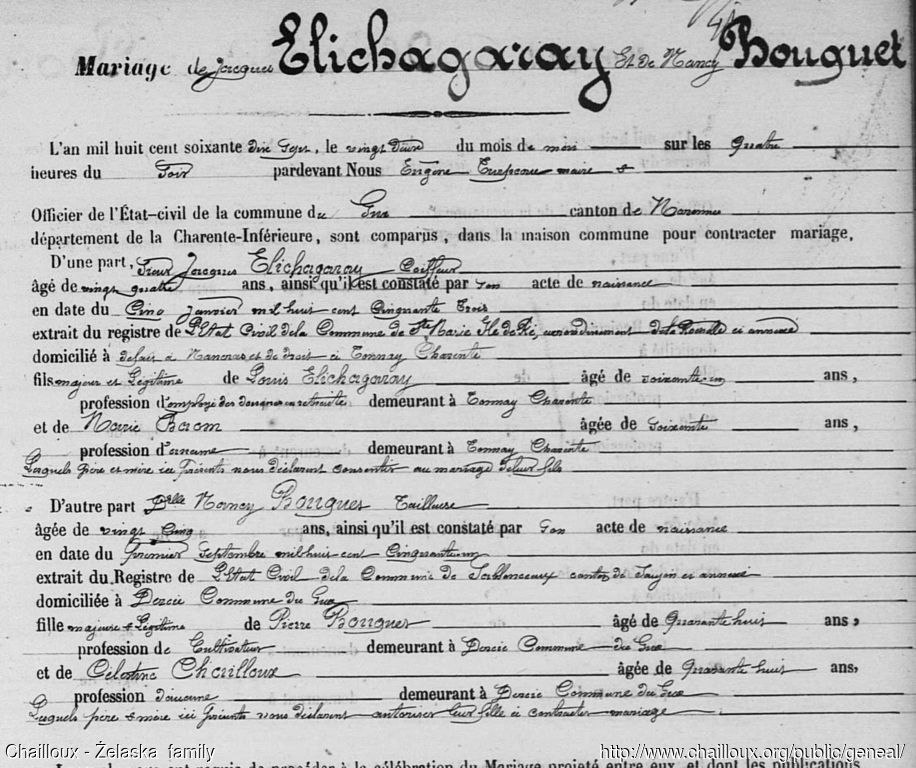 Mariage de Jacques Elichagaray Et de Nancy Bouguet
L'an mil huit cent soixante dix Sept, le vingt deux du mois de mai sur les Quatre
heures du Soir pardevant Nous Eugène maire &
Officier de l'État-civil de la commune du Gua canton de Marennes
département de la Charente-Inférieure, sont comparus, dans la maison commune pour contracter mariage,
D'une part, Sieur Jacques Elichagaray Coiffeur
âgé de vingt quatre ans, ainsi qu'il est constaté par son acte de naissance
en date du Cinq janvier mil huit cent Cinquante trois
extrait du registre de L'Etat Civil de la Commune de Ste Marie Ile de Ré, arrondissement de la Rochelle ci annexé
domicilié à de fait à Nancras et de droit à Tonnay Charente
fils majeur et Légitime de Louis Elichagaray âgé de soixante un ans,
profession d'employé des douanes en retraite demeurant à Tonnay Charente
et de Marie Baron âgée de Soixante ans,
profession d'aucune demeurant à Tonnay Charente
Lesquels père et mère ici présents nous déclarent consentir au mariage de leur fils
D'autre part Delle Nancy Bouguet Tailleuse
âgée de vingt Cinq ans, ainsi qu'il est constaté par son acte de naissance
en date du premier Septembre mil huit cent Cinquante un
extrait du Registre de L'Etat Civil de la Commune de Sablonceaux canton de Saujon ci annexé
domiciliée à Dercie Commune du Gua
fille majeure & Légitime de Pierre Bouguet âgé de Quarante huit ans,
profession de Cultivateur demeurant à Dercie Commune du Gua
et de Célestine Chailloux âgée de Quarante huit ans,
profession d'aucune demeurant à Dercie Commune du Gua
Lesquels père & mère ici présents nous déclarent autoriser leur fille à contracter mariage
Chailloux - Żelaska family http://www.chailloux.org/public/geneal/